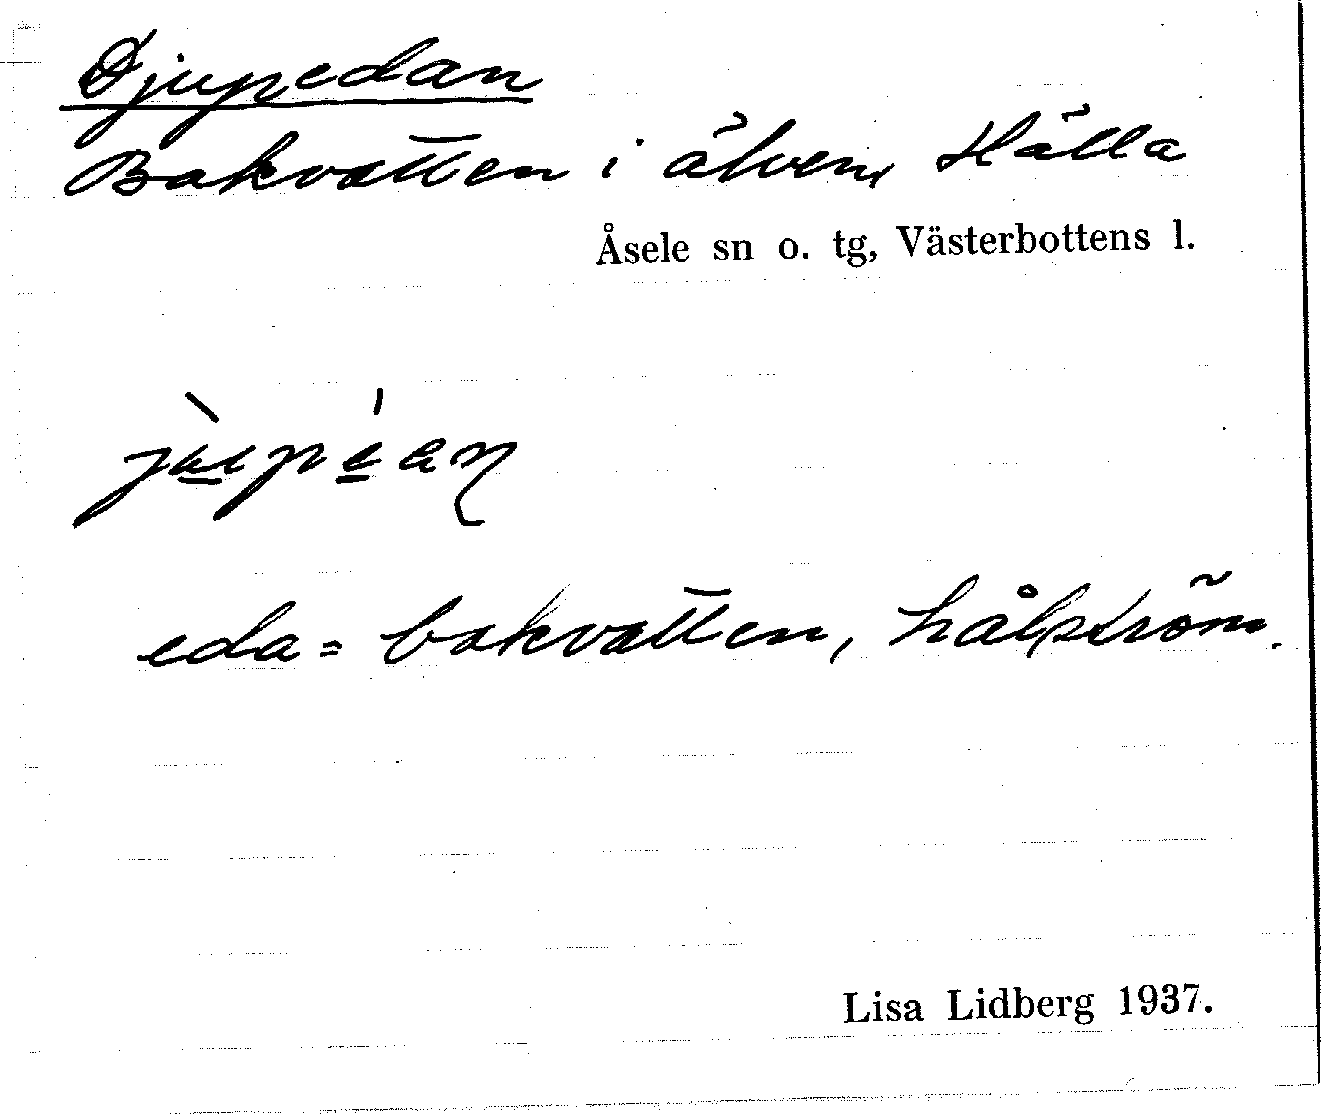 Djupedan
Bakvatten i älven, Hälla
Åsele sn o. tg, Västerbottens l.
jùpéan
eda = bakvatten, hålström.
Lisa Lidberg 1937.